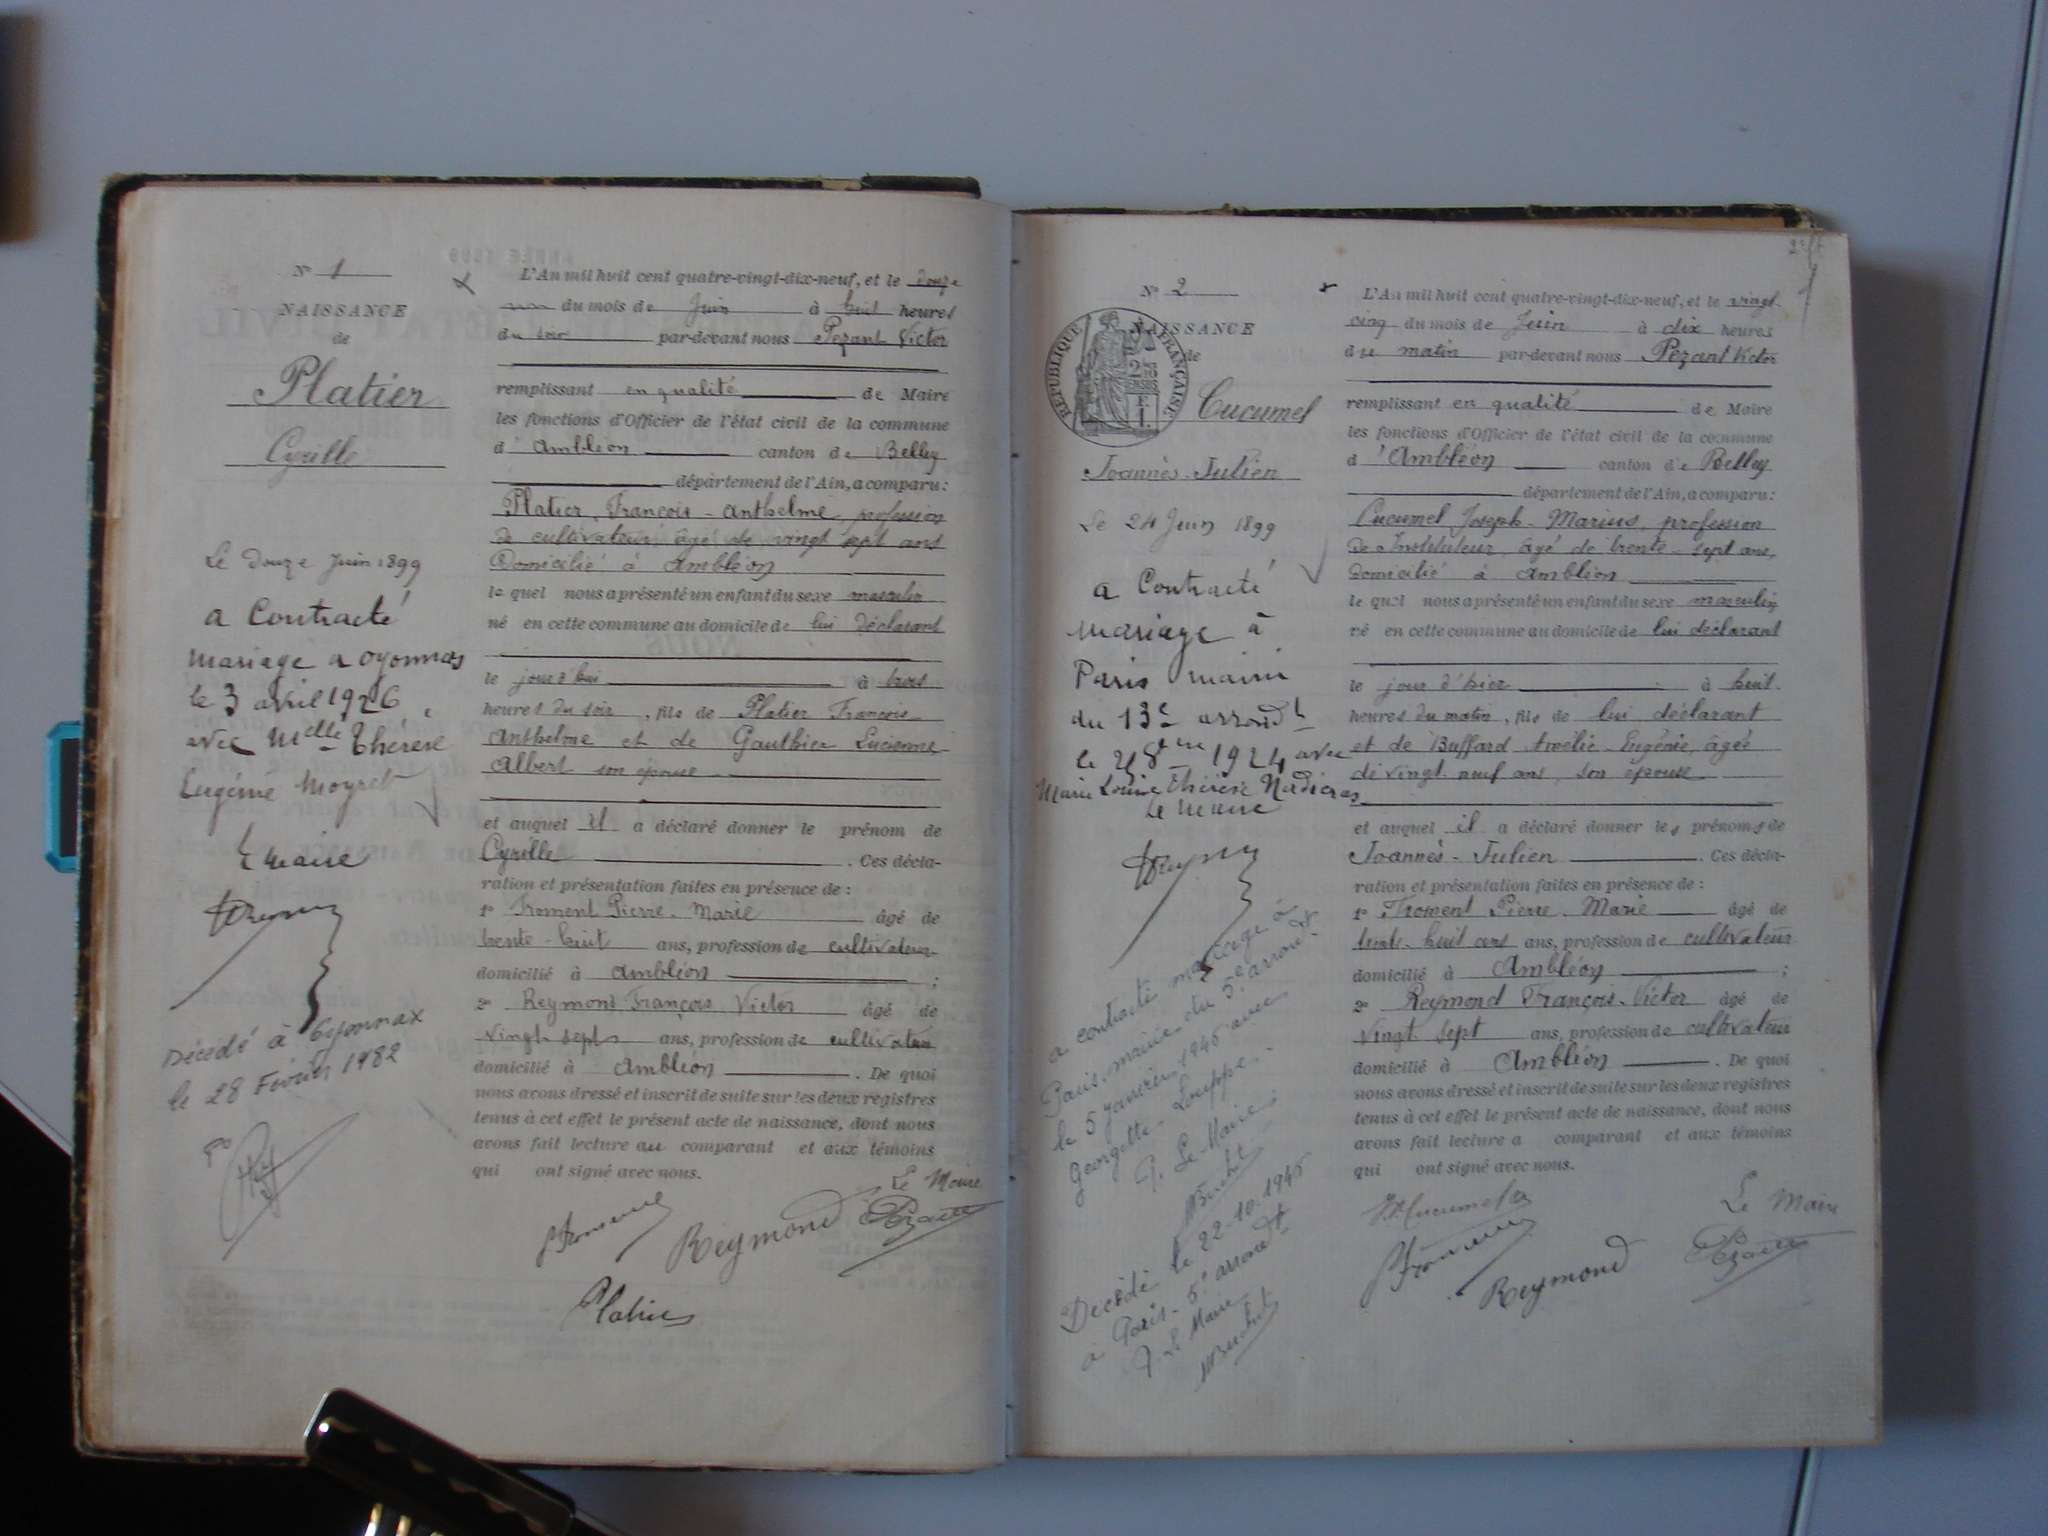 N° 1
NAISSANCE
de
Platier
Cyrille
Le douze juin 1899
a Contracté
mariage a oyonnax
le 3 avril 1926
avec Melle Thérèse
Eugénie Moyret
Le maire
Décédé à Oyonnax
le 28 Février 1982
L'An mil huit cent quatre-vingt-dix-neuf, et le douze
du mois de Juin à huit heures
du soir par-devant nous Pezant Victor
remplissant en qualité de Maire
les fonctions d'Officier de l'état civil de la commune
d' Ambléon canton de Belley
département de l'Ain, a comparu :
Platier, François-Anthelme, profession
de cultivateur, âgé de vingt sept ans
Domicilié à Ambléon
le quel nous a présenté un enfant du sexe masculin
né en cette commune au domicile de lui déclarant
le jour d'hui à trois
heures du soir, fils de Platier François
Anthelme et de Gauthier Lucienne
Albert son épouse
et auquel il a déclaré donner le prénom de
Cyrille . Ces décla-
ration et présentation faites en présence de :
1° Froment Pierre-Marie âgé de
trente-huit ans, profession de cultivateur
domicilié à Ambléon ;
2° Reymond François Victor âgé de
vingt-sept ans, profession de cultivateur
domicilié à Ambléon . De quoi
nous avons dressé et inscrit de suite sur les deux registres
tenus à cet effet le présent acte de naissance, dont nous
avons fait lecture au comparant et aux témoins
qui ont signé avec nous.
Le Maire
Reymond
Platier
N° 2
NAISSANCE
de
RÉPUBLIQUE FRANÇAISE
Cucumel
Joannès-Julien
Le 24 Juin 1899
a Contracté
mariage à
Paris mairie
du 13e arrondt
1924 avec
Marie Louise Thérèse
Le Maire
a contracté mariage à
Paris, mairie du 5e arrondt
le 5 janvier 1945 avec
Georgette
P. Le Maire
Décédé le 22-10-1945
à Paris-5e arrondt
P. Le Maire
L'An mil huit cent quatre-vingt-dix-neuf, et le vingt-
cinq du mois de Juin à dix heures
du matin par-devant nous Pezant Victor
remplissant en qualité de Maire
les fonctions d'Officier de l'état civil de la commune
d' Ambléon canton de Belley
département de l'Ain, a comparu :
Cucumel Joseph-Marius, profession
de Instituteur, âgé de trente-sept ans,
domicilié à Ambléon
le quel nous a présenté un enfant du sexe masculin
né en cette commune au domicile de lui déclarant
le jour d'hier à huit
heures du matin, fils de lui déclarant
et de Buffard Amélie-Eugénie, âgée
de vingt neuf ans, son épouse
et auquel il a déclaré donner les prénoms de
Joannès-Julien . Ces décla-
ration et présentation faites en présence de :
1° Froment Pierre-Marie âgé de
trente-huit ans ans, profession de cultivateur
domicilié à Ambléon ;
2° Reymond François-Victor âgé de
vingt sept ans, profession de cultivateur
domicilié à Ambléon . De quoi
nous avons dressé et inscrit de suite sur les deux registres
tenus à cet effet le présent acte de naissance, dont nous
avons fait lecture a comparant et aux témoins
qui ont signé avec nous.
Le Maire
Reymond